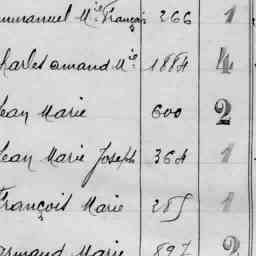 mmanuel Mie François 266 1
harles amand Mie 1884 4
ean Marie 600 2
ean Marie Joseph 364 1
François Marie 285 1
armand Marie 897 2